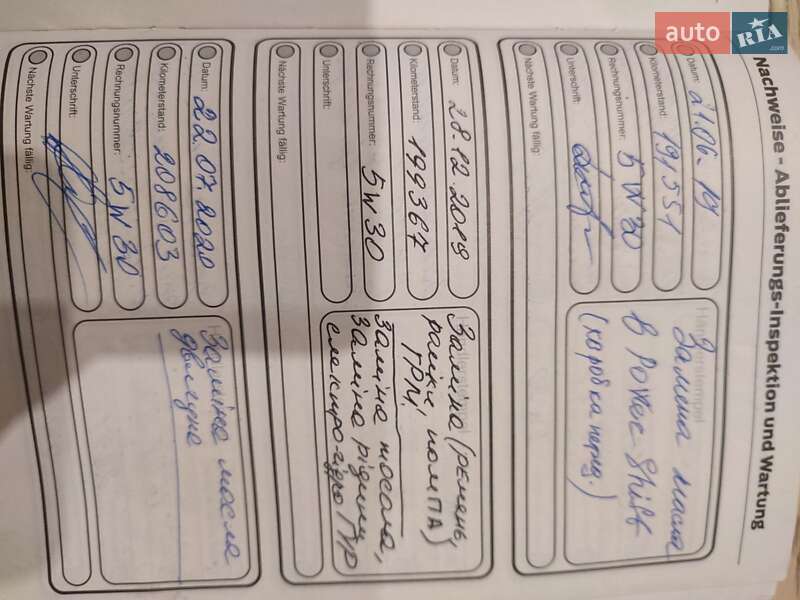 auto RIA .com
Nachweise - Ablieferungs-Inspektion und Wartung
Datum: 21.06.19
Kilometerstand: 191551
Rechnungsnummer: 5W30
Unterschrift:
Nächste Wartung fällig:
Händlerstempel
Замена масла
в Power Shift
(коробка перед.)
Datum: 28.12.2019
Kilometerstand: 199367
Rechnungsnummer: 5W30
Unterschrift:
Nächste Wartung fällig:
Заміна (ремень,
ролики, помпа)
ГРМ,
Заміна тосола,
Заміна рідину
електро-гідро ГУР
Datum: 22.07.2020
Kilometerstand: 208603
Rechnungsnummer: 5W30
Unterschrift:
Nächste Wartung fällig:
Заміна масла
двигуна